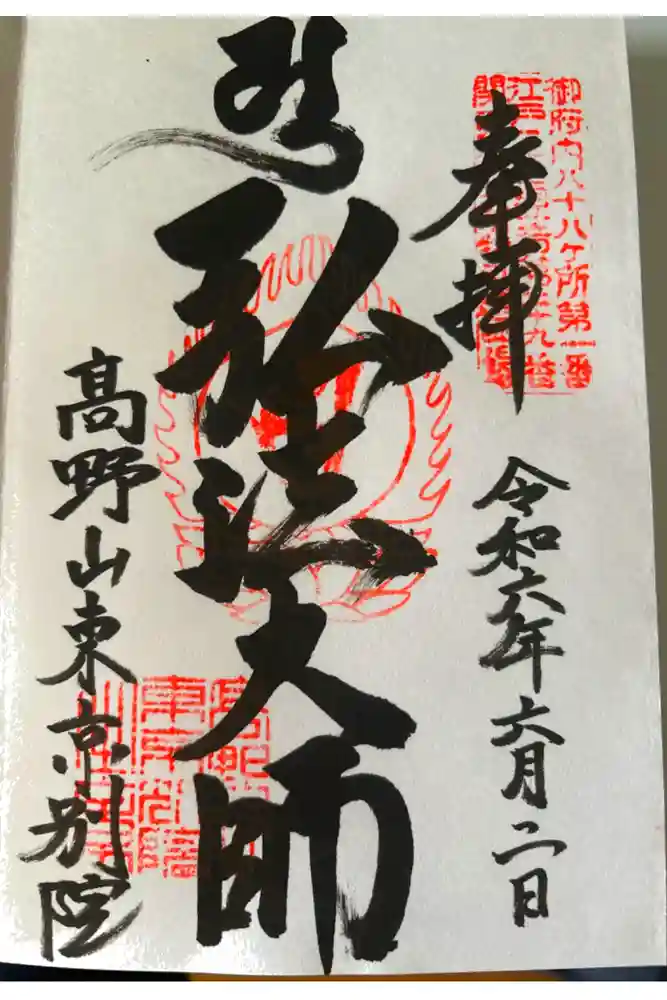 奉拝
令和六年六月二日
御府内八十八ヶ所第一番
弘法大師
高野山東京別院